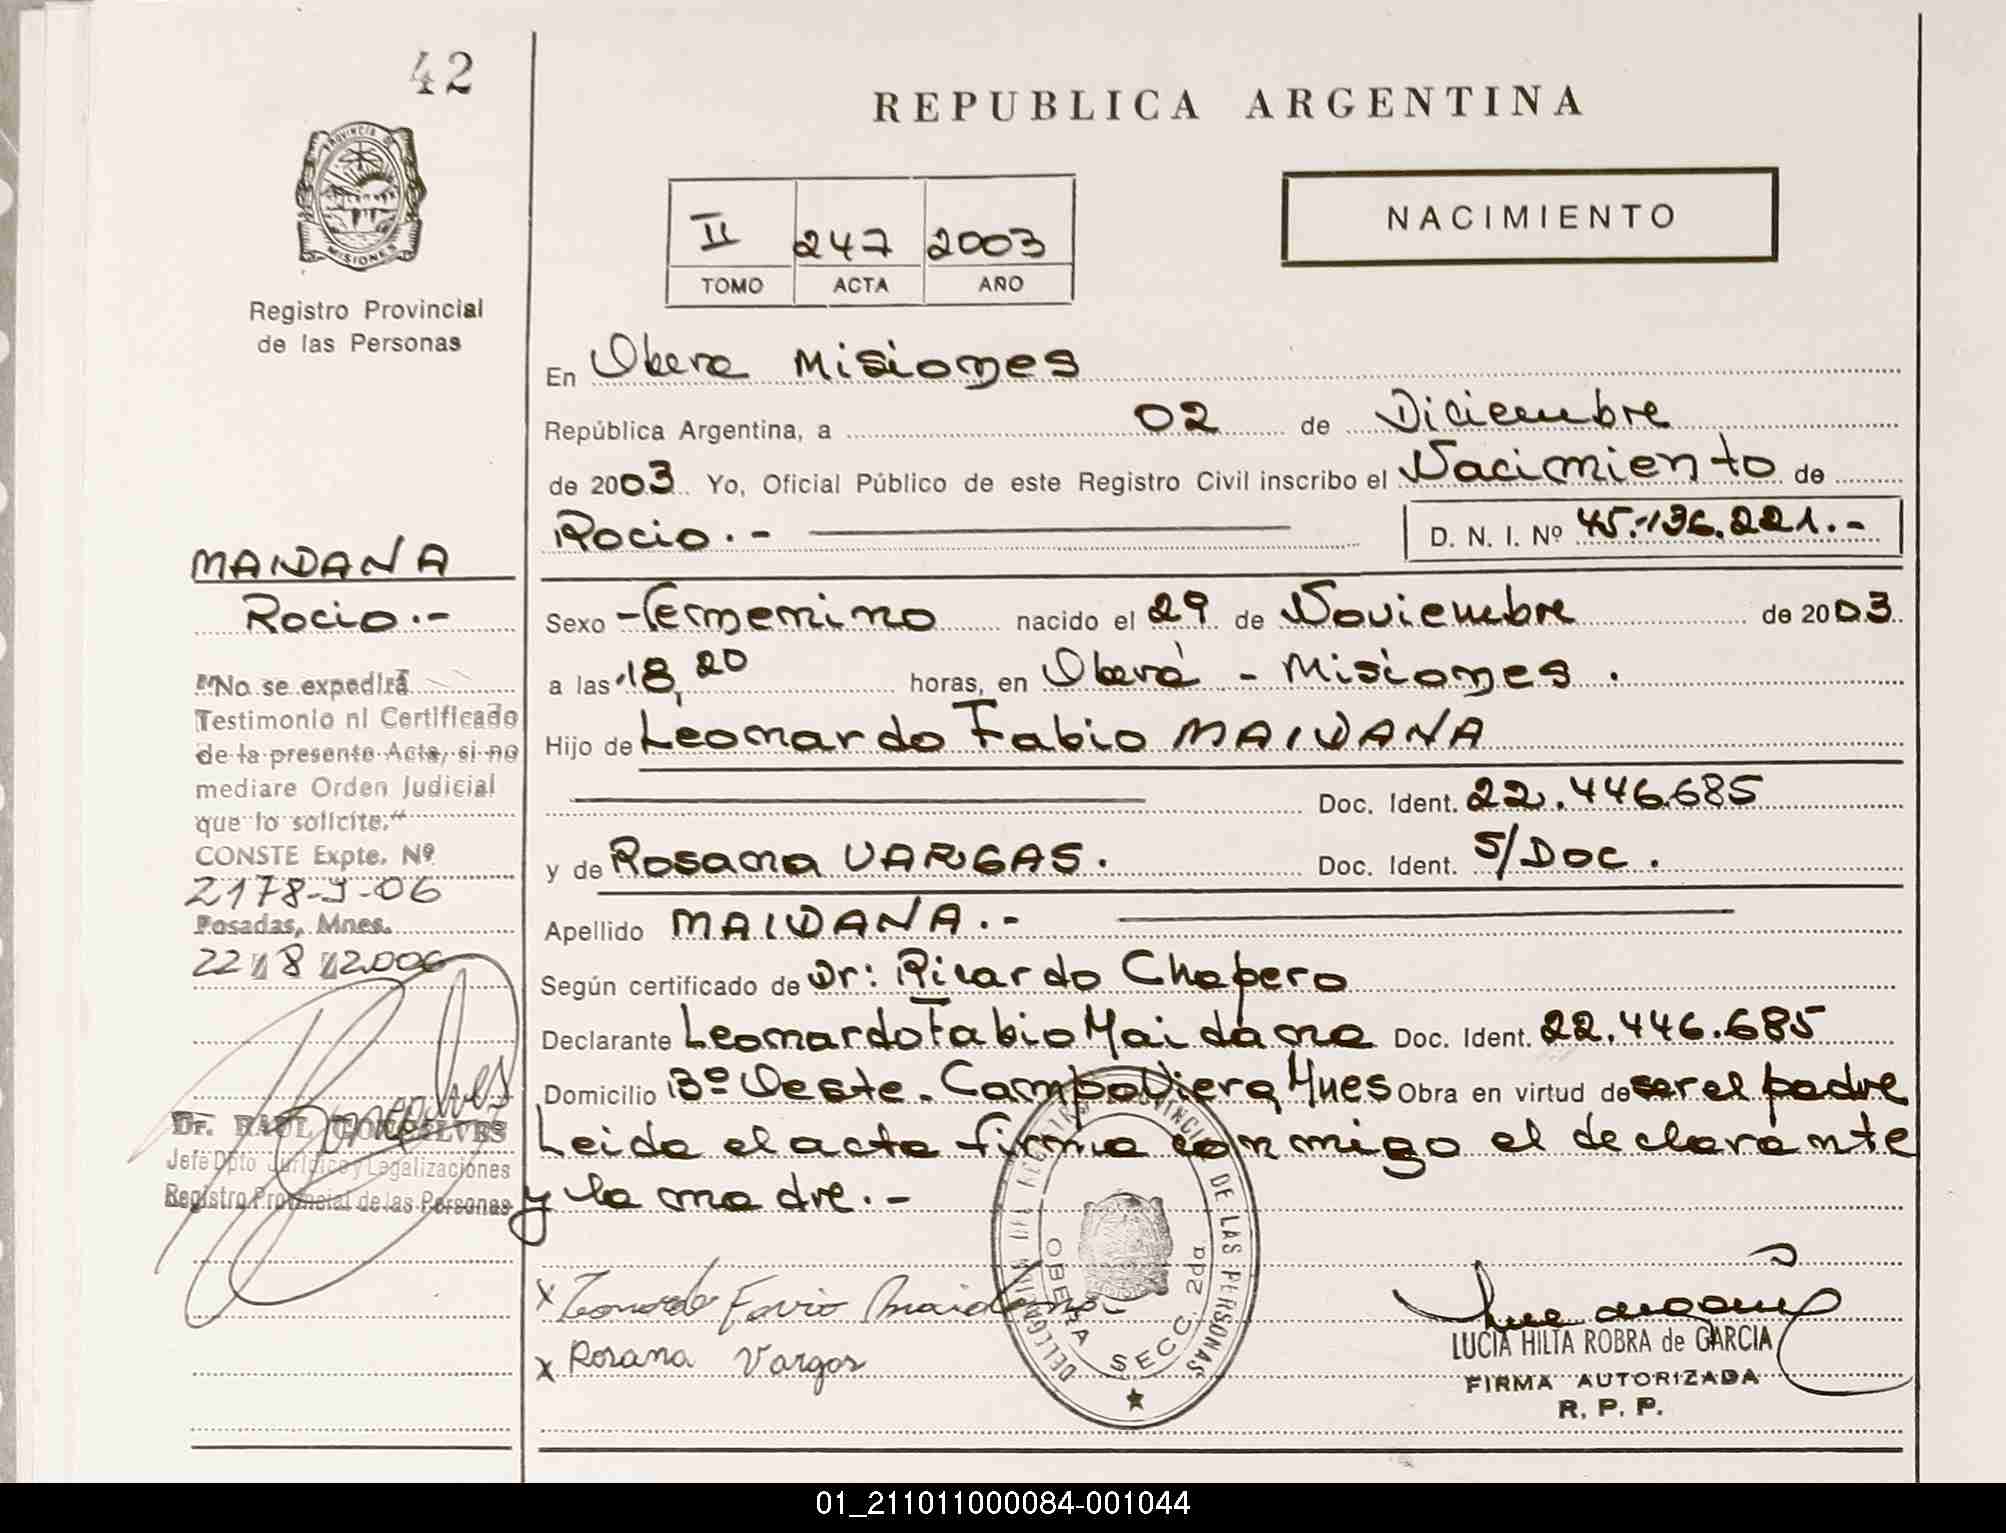 42
PROVINCIA DE
MISIONES
Registro Provincial
de las Personas
REPUBLICA ARGENTINA
NACIMIENTO
II 247 2003
TOMO ACTA AÑO
En Obera Misiones
República Argentina, a 02 de Diciembre
de 2003. Yo, Oficial Público de este Registro Civil inscribo el Nacimiento de
Rocio.-
D. N. I. Nº 45.136.221.-
Sexo Femenino nacido el 29 de Noviembre de 2003.
a las 18,20 horas, en Oberá - Misiones.
Hijo de Leonardo Fabio MAIDANA
Doc. Ident. 22.446.685
y de Rosana VARGAS. Doc. Ident. S/Doc.
Apellido MAIDANA.-
Según certificado de Dr: Ricardo Chapero
Declarante Leonardo Fabio Maidana Doc. Ident. 22.446.685
Domicilio Bº Oeste. Campo Viera Mnes Obra en virtud de ser el padre
Leida el acta firma conmigo el declarante
y la madre.-
x Leonardo Favio Maidana
x Rosana Vargas
DELEGACION DEL REGISTRO PROVINCIAL DE LAS PERSONAS
OBERA SECC. 2da
LUCIA HILTA ROBRA de GARCIA
FIRMA AUTORIZADA
R. P. P.
MAIDANA
Rocio.-
"No se expedirá
Testimonio ni Certificado
de la presente Acta, si no
mediare Orden Judicial
que lo solicite."
CONSTE Expte. Nº
2178-J-06
Posadas, Mnes.
22/8/2006
Dr. RAUL GONCALVES
Jefe Dpto Jurídico y Legalizaciones
Registro Provincial de las Personas
01_211011000084-001044